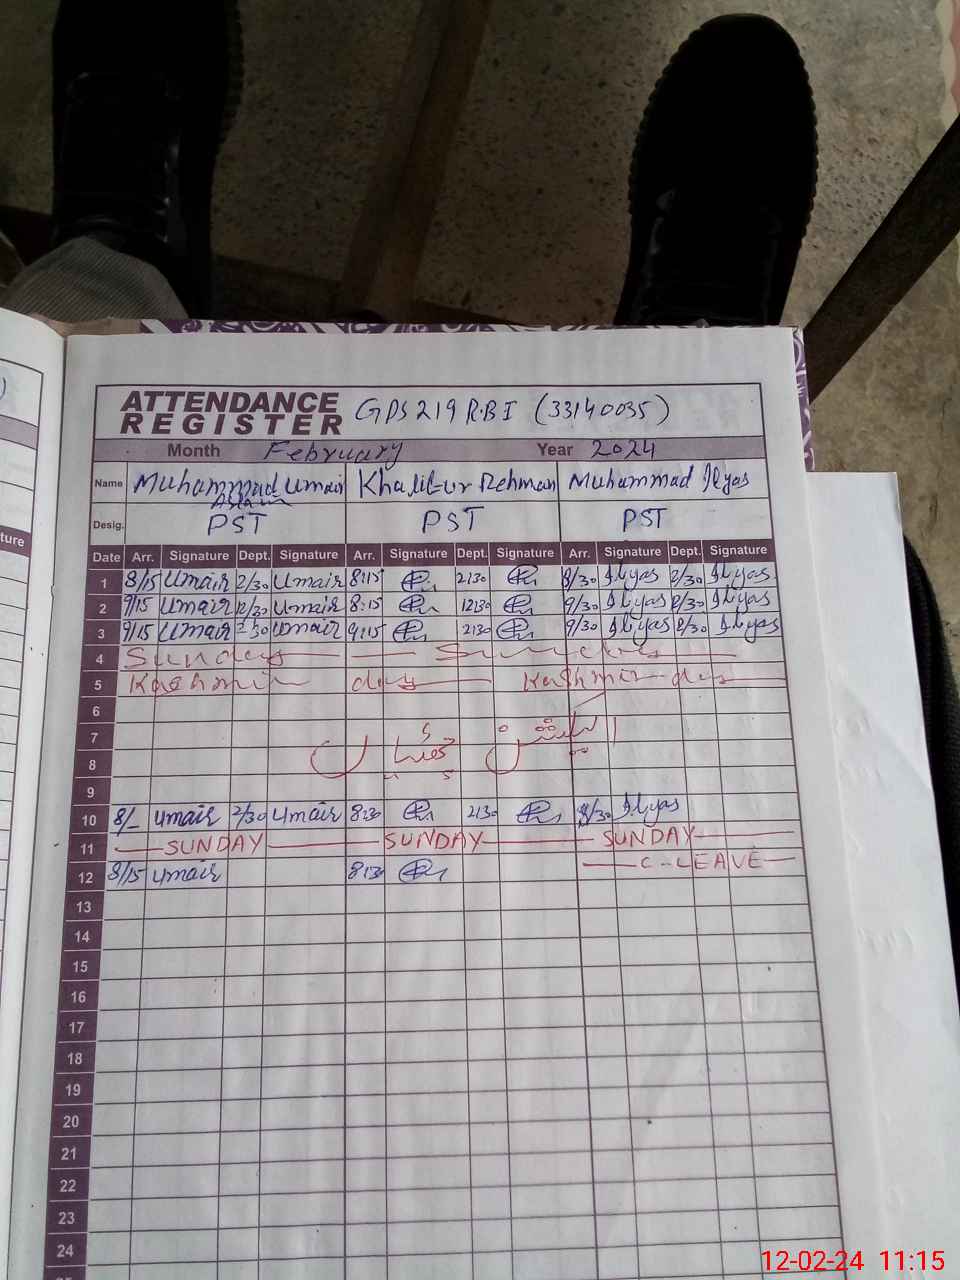 ATTENDANCE REGISTER GPS 219 R.B I (33140035)
Month February Year 2024
Name Muhammad Umair Aslam Khalil-ur-Rehman Muhammad Ilyas
Desig. PST PST PST
ture Date Arr. Signature Dept. Signature Arr. Signature Dept. Signature Arr. Signature Dept. Signature
1 8/15 Umair 2/30 Umair 8:15 2:30 8/30 Ilyas 2/30 Ilyas
2 9/15 Umair 12/30 Umair 8:15 12:30 9/30 Ilyas Ilyas
3 9/15 Umair 2:30 Umair 9:15 2:30 9/30 Ilyas 2/30 Ilyas
4 Sunday Sunday
5 Kashmir day Kashmir day
6
7 الیکشن چھٹیاں
8
9
10 8/- Umair 2/30 Umair 8:30 2:30 8/30 Ilyas
11 SUNDAY SUNDAY SUNDAY
12 8/15 Umair 8:30 C-LEAVE
13
14
15
16
17
18
19
20
21
22
23
24
12-02-24 11:15